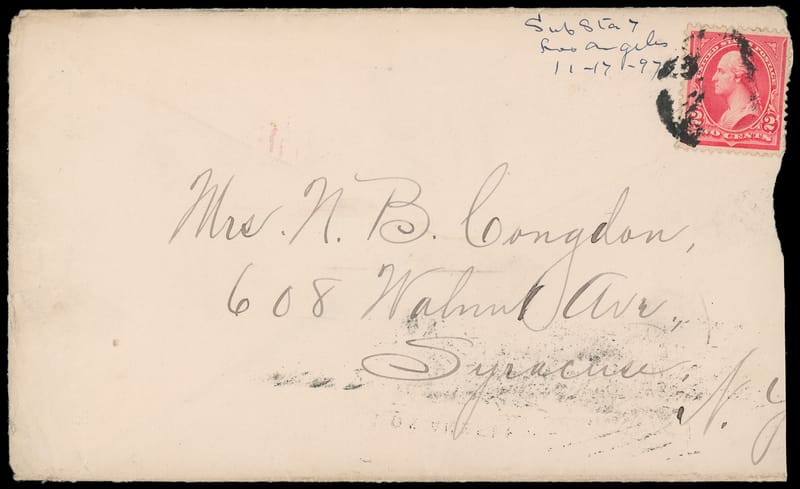 Sub Sta 7
Los Angeles
11-17-97
UNITED STATES POSTAGE
2 2
TWO CENTS
Mrs. N. B. Congdon,
608 Walnut Ave,
Syracuse,
N. Y